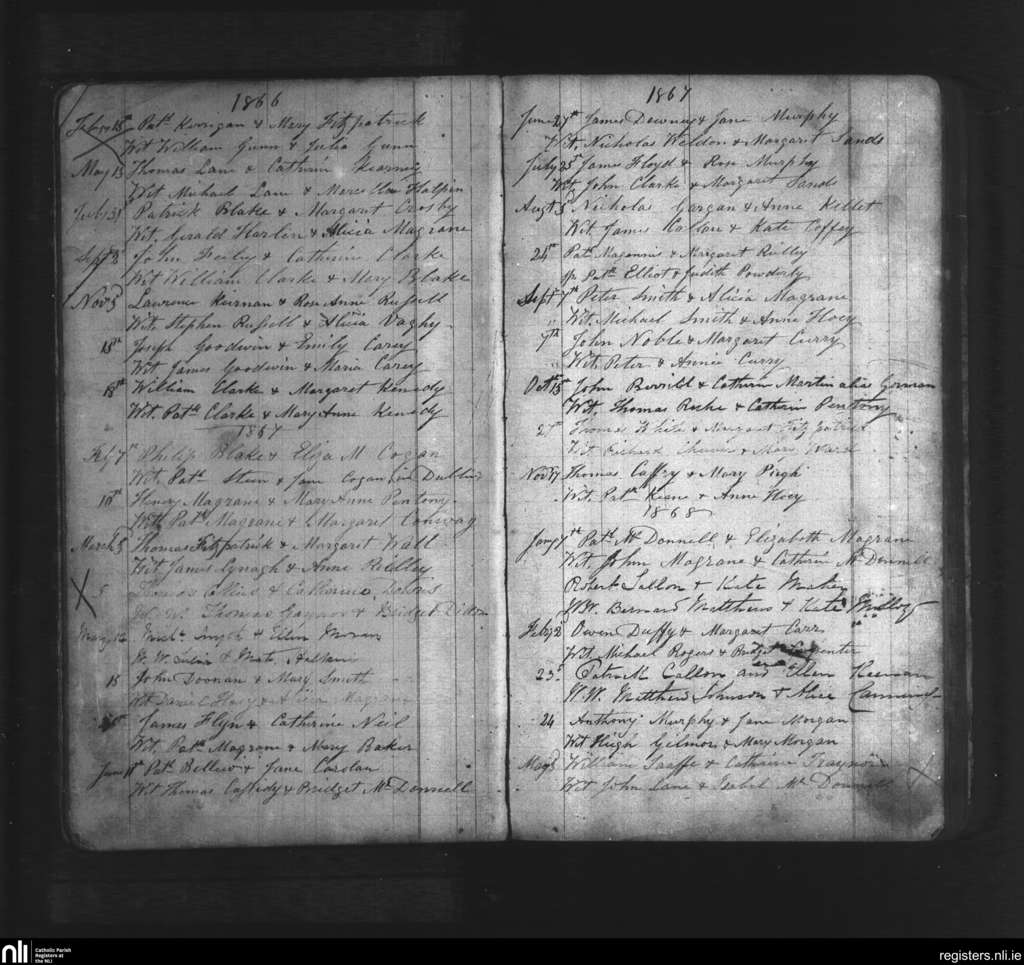 1866
Feby 15th Patk Kerrigan & Mary Fitzpatrick
Wit William Gunn & Julia Gunn
May 13 Thomas Lane & Cathrin Kearney
Wit Michael Lane & Halpin
July 31 Patrick Blake & Margaret Crosby
Wit, Gerald Harlin & Alicia Magrane
Sept 2 John & Catherine Clarke
Wit William Clarke & Mary Blake
Nov 5 Lawrence Keirnan & Rose Anne Russell
Wit, Stephen Russell & Alicia
15th Joseph Goodwin & Emily Carey
Wit James Goodwin & Maria Carey
18th William Clarke & Margaret Kenedy
Wit, Patk Clarke & Mary Anne Kenedy
1867
Feby 7th Philip Blake & Eliza M Cogan
Wit, Patk & Jane Cogan in Dublin
10th Henry Magrane & Mary Anne Pentony
With Patk Magrane & Margaret Conway
March 5 Thomas Fitzpatrick & Margaret Wall
Wit James & Anne Reilley
X 5 Thomas Collins & Catharine
Thomas Gaynor & Bridget
May 12 Michl Smyth & Ellen Moran
W. W.
15 John Doonan & Mary Smith
Wit Daniel Hoey & Alicia Magrane
James Flyn & Catherine Neil
Wit, Patk Magrane & Mary Baker
June 11th Patk Bellew & Jane Carolan
Wit Thomas Cassidy & Bridget Mc Donnell
1867
June 27th James Downey & Jane Murphy
Wit, Nicholas Weldon & Margaret Sands
July 25th James Floyd & Rose Murphy
Wit, John Clarke & Margaret Sands
Augt 5 Nicholas Gargan & Anne Kellet
Wit James & Kate Coffey
24th Patk Magennis & Margaret Reilley
Patk Elliot & Judith Powderly
Sept 7th Peter Smith & Alicia Magrane
" Wit, Michael Smith & Anne Hoey
9th John Noble & Margaret Curry
" Wit, Peter & Annie Curry
Oct 15th John Berrill & Cathrin Martin alias Gorman
Wit, Thomas & Cathrin Pentony
27 Thomas White & Margaret Fitzpatrick
Wit Richard & Mary Ward
Nov 17 Thomas Caffry & Mary Pirgh
Wit, Patk Keane & Anne Hoey
1868
Jany 7th Patk Mc Donnell & Elizabeth Magrane
Wit, John Magrane & Catherin Mc Donnell
Robert Fallon & Kate
W.W. Bernard Matthews & Kate
Feby 2 Owen Duffy & Margaret Carr
Wit, Michael Rogers & Bridget
23 Patrick Callon and Ellen Keenan
W.W. Matthew Johnson & Alice
24 Anthony Murphy & Jane Morgan
Wit Hugh Gilmor & Mary Morgan
May 3 William Taaffe & Catherine Traynor
Wit John Lane & Isabel Mc Donnell
X
nli
Catholic Parish
Registers at
the NLI
registers.nli.ie